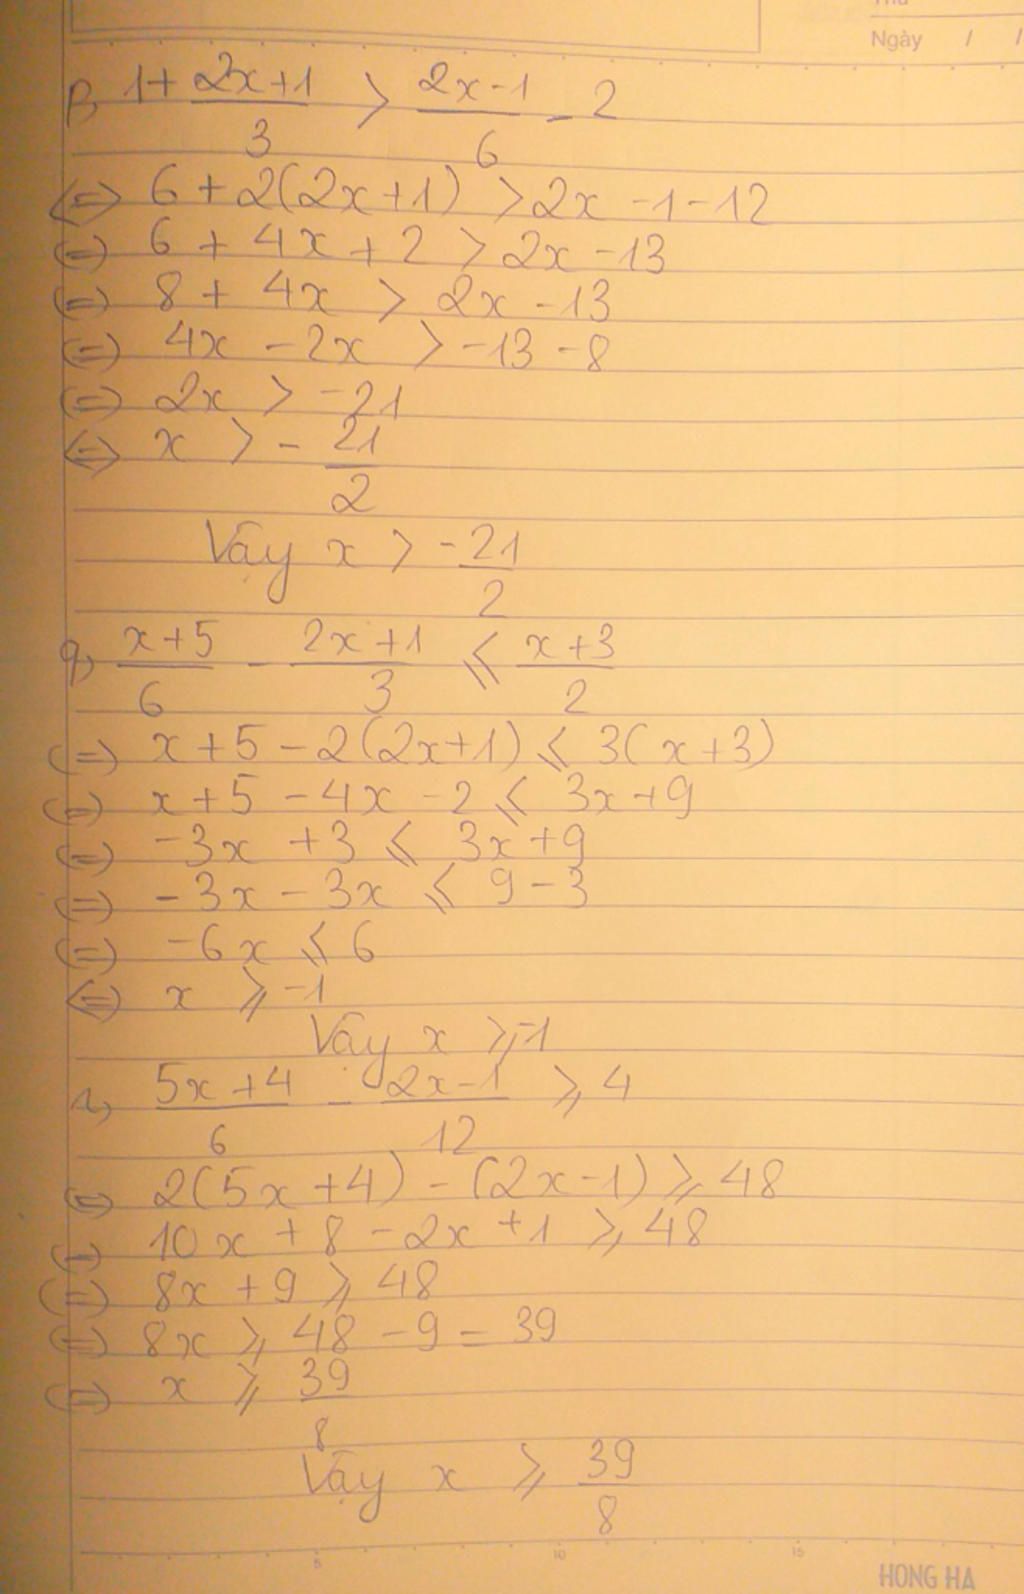 Thứ
Ngày / /
p, 1 + (2x+1)/3 > (2x-1)/6 - 2
<=> 6 + 2(2x+1) > 2x - 1 - 12
(=) 6 + 4x + 2 > 2x - 13
(=) 8 + 4x > 2x - 13
(=) 4x - 2x > -13 - 8
(=) 2x > -21
<=> x > - 21/2
Vậy x > - 21/2
q, (x+5)/6 - (2x+1)/3 ⩽ (x+3)/2
(=) x + 5 - 2(2x+1) ⩽ 3(x+3)
(=) x + 5 - 4x - 2 ⩽ 3x + 9
(=) -3x + 3 ⩽ 3x + 9
(=) -3x - 3x ⩽ 9 - 3
(=) -6x ⩽ 6
<=) x ⩾ -1
Vậy x ⩾ -1
r, (5x+4)/6 - (2x-1)/12 ⩾ 4
(=) 2(5x+4) - (2x-1) ⩾ 48
(=) 10x + 8 - 2x + 1 ⩾ 48
(=) 8x + 9 ⩾ 48
(=) 8x ⩾ 48 - 9 = 39
(=) x ⩾ 39/8
Vậy x ⩾ 39/8
5 10 15
HONG HA